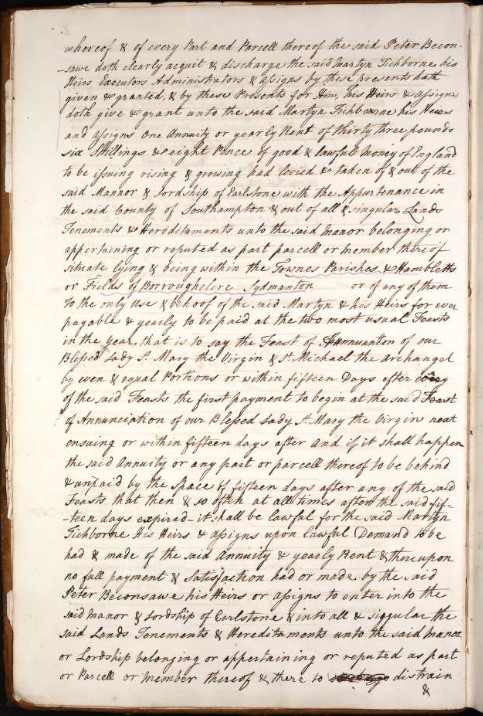 whereof & of every Part and Parcell thereof the said Peter Becon-
-sawe doth clearly acquit & discharge the said Martyn Tichborne his
Heirs Executors Administrators & assigns by these presents hath
given & granted, & by these Presents for Him, his Heirs & assigns
doth give & grant unto the said Martyn Tichborne his Heirs
and assigns One Annuity or yearly Rent of thirty three pounds
six Shillings & eight Pence of good & lawfull Money of England
to be issuing rising & growing had levied & taken of & out of the
said Mannor & Lordship of Earlstone with the Appurtenance in
the said County of Southampton & out of all & singular Lands
Tenements & Hereditaments unto the said manor belonging or
appertaining or reputed as part parcell or member thereof
situate lying & being within the Townes Parishes & Hambletts
or Fields of Borroughclere Sydmanton or of any of them
To the only use & behoof of the said Martyn & his Heirs for ever
payable & yearly to be paid at the two most usual Feasts
in the year, that is to say the Feast of Annunciation of our
Blessed Lady St. Mary the Virgin & St. Michael the Archangel
by even & equal Portions or within fifteen Days after every
of the said Feasts the first payment to begin at the said Feast
of Annunciation of our Blessed Lady St. Mary the Virgin next
ensuing or within fifteen days after And if it shall happen
the said Annuity or any part or parcell thereof to be behind
& unpaid by the space of fifteen days after any of the said
Feasts that then & so often at all times after the said fif-
-teen days expired it shall be lawful for the said Martyn
Tichborne His Heirs & assigns upon lawful Demand to be
had & made of the said Annuity & yearly Rent & thereupon
no full payment & Satisfaction had or made by the said
Peter Beconsawe his Heirs or assigns to enter into the
said Manor & Lordship of Earlstone & into all & singular the
said Lands Tenements & Hereditaments unto the said manor
or Lordship belonging or appertaining or reputed as part
or Parcell or member thereof & there to distrain
&